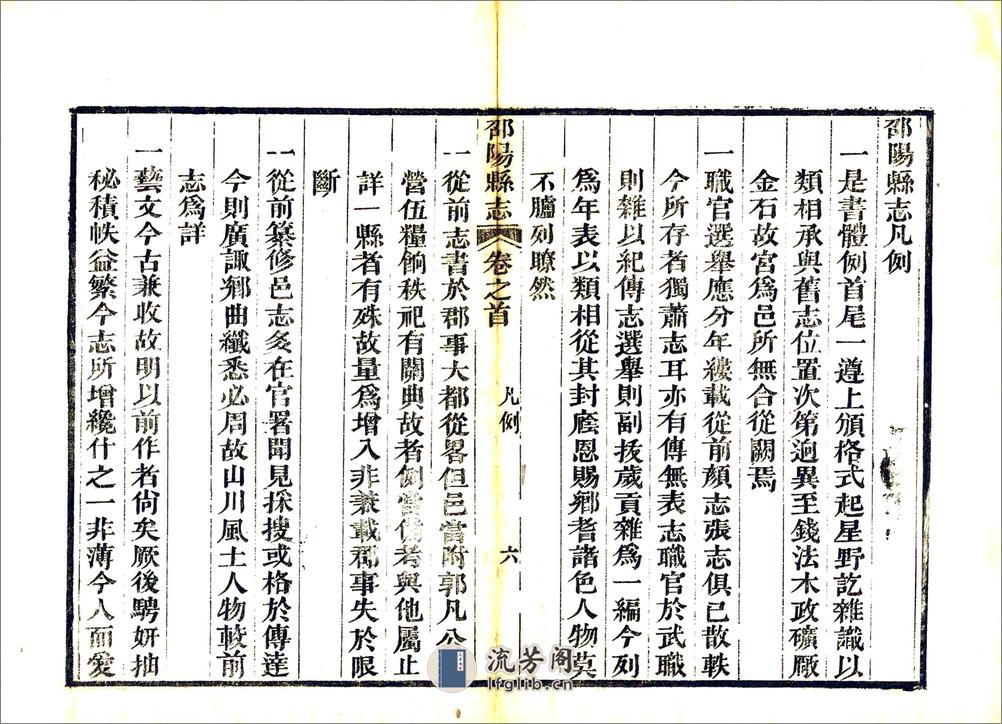 邵陽縣志凡例
一是書體例首尾一遵上頒格式起星野訖雜識以
類相承與舊志位置次第逈異至錢法木政礦厰
金石故宮爲邑所無合從闕焉
一職官選舉應分年縷載從前顔志張志俱已散軼
今所存者獨蕭志耳亦有傳無表志職官於武職
則雜以紀傳志選舉則副拔歲貢雜爲一編今列
爲年表以類相從其封廕恩賜鄉耆諸色人物莫
不臚列瞭然
邵陽縣志 卷之首 凡例 六
一從前志書於郡事大都從畧但邑當附郭凡公
營伍糧餉秩祀有關典故者例當備考與他屬止
詳一縣者有殊故量爲增入非兼載郡事失於限
斷
一從前纂修邑志多在官署聞見採搜或格於傳達
今則廣諏鄉曲纖悉必周故山川風土人物較前
志爲詳
一藝文今古兼收故明以前作者尙矣厥後騁妍抽
秘積帙益繁今志所增纔什之一非薄今人而愛
流芳阁
lfglib.cn